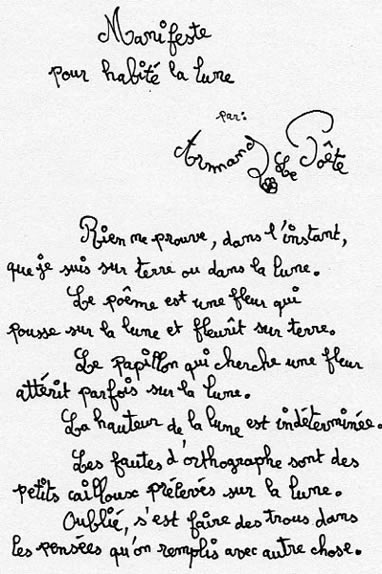 Manifeste
pour habité la lune
par:
Armand Le Poête
Rien me prouve, dans l'instant,
que je suis sur terre ou dans la lune.
Le poême est une fleur qui
pousse sur la lune et fleurît sur terre.
Le papillon qui cherche une fleur
attérit parfois sur la lune.
La hauteur de la lune est indéterminée.
Les fautes d'orthographe sont des
petits cailloux prélevés sur la lune.
Oublié, s'est faire des trous dans
les pensées qu'on remplis avec autre chose.